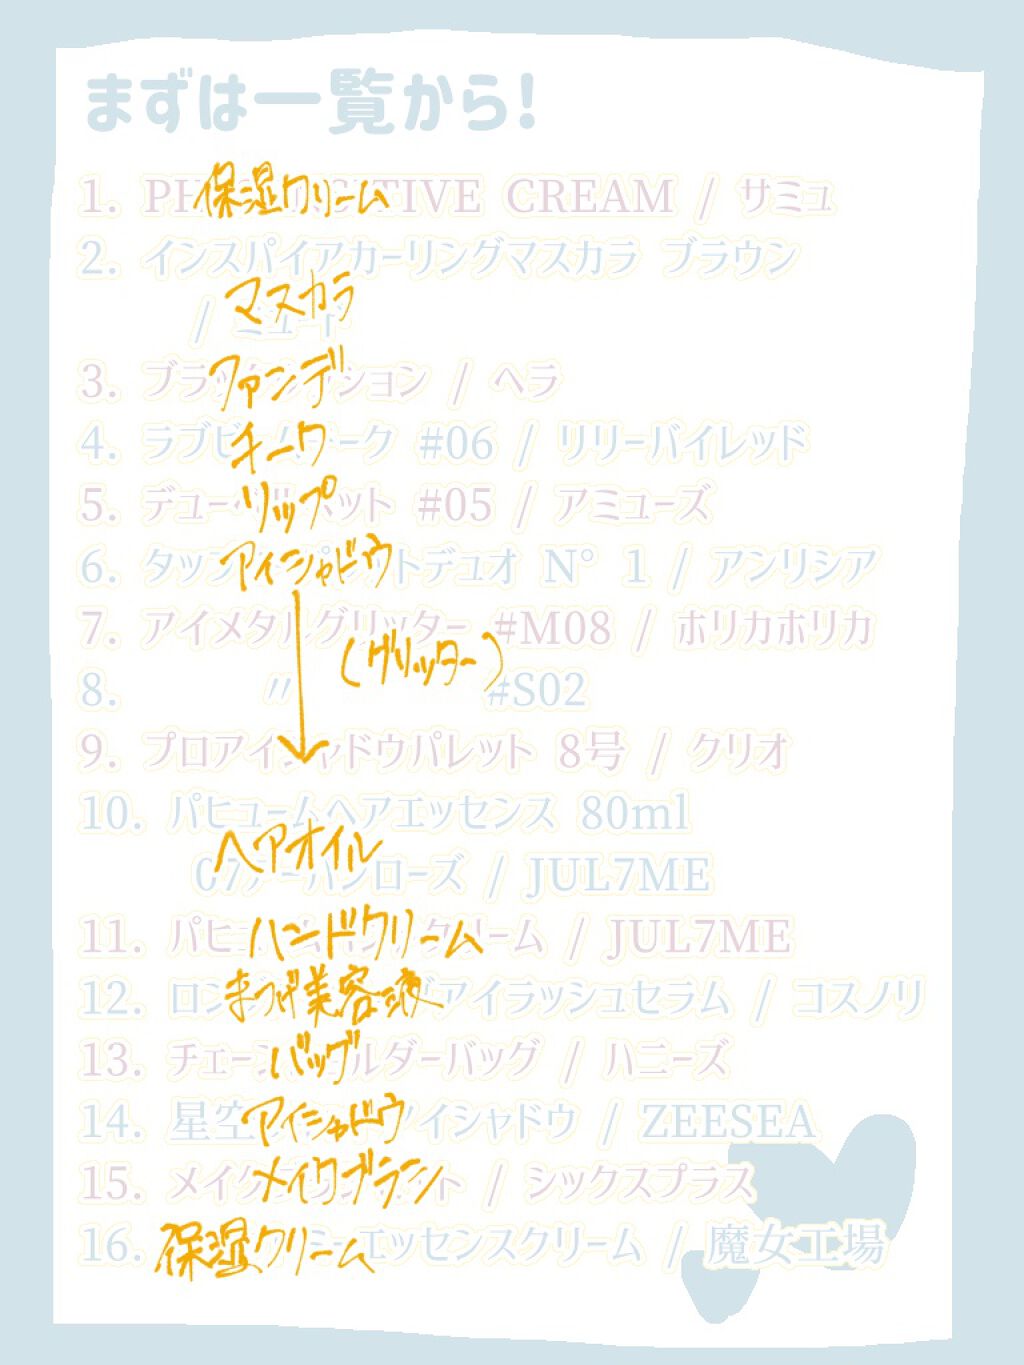 まずは一覧から!
1. CREAM / サミュ
保湿クリーム
2. インスパイアカーリングマスカラ ブラウン
マスカラ
/
3. / ヘラ
ファンデ
4. #06 / リリーバイレッド
チーク
5. #05 / アミューズ
リップ
6. N° 1 / アンリシア
アイシャドウ
7. アイメタルグリッター #M08 / ホリカホリカ
(グリッター)
8. 〃 #S02
9. プロアイシャドウパレット 8号 / クリオ
10. パヒュームヘアエッセンス 80ml
ヘアオイル
/ JUL7ME
11. / JUL7ME
ハンドクリーム
12. アイラッシュセラム / コスノリ
まつげ美容液
13. / ハニーズ
バッグ
14. アイシャドウ / ZEESEA
アイシャドウ
15. / シックスプラス
メイクブラシ
16. エッセンスクリーム / 魔女工場
保湿クリーム